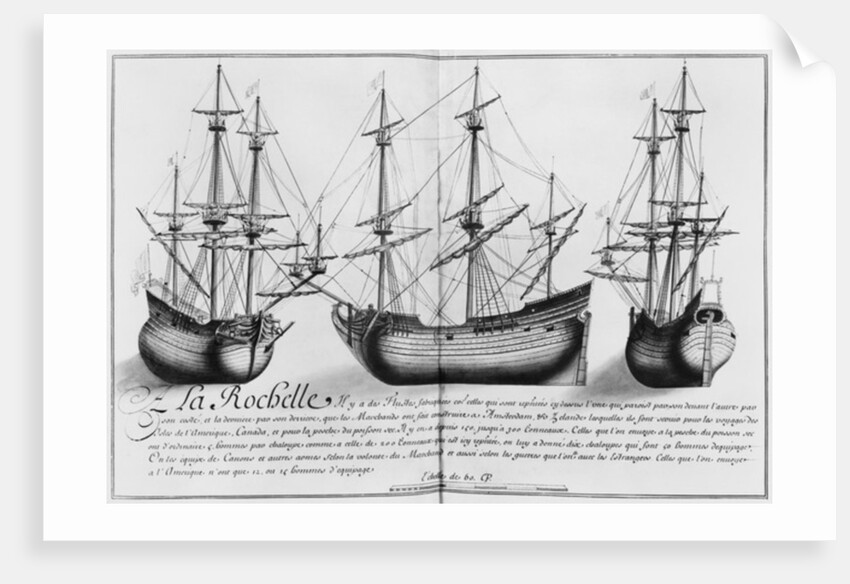 A La Rochelle, Il y a des Flustes, fabriquees com͞e celles qui sont expliquées cy dessous l'une qui paroist par son devant l'autre par
son costé, et la derniere par son derriere, que les Marchands ont fait construire a Amsterdam, et Zelande lesquelles ils font servir pour les voyages des
Isles de l'Amerique, Canada, et pour la pesche du poisson sec. Il y en a depuis 150, jusqu'a 300 tonneaux. Celles que l'on envoye a la pesche du poisson sec
ont d'ordinaire 5 hommes par chaloupe comme a celle de 200 tonneaux qui est icy , on luy a donné dix chaloupes qui font 50 hommes d'equipage.
On les équipe de Canons et autres armes selon la volonté du Marchand et aussi selon les guerres que l'on a avec les Estrangers. Celles que l'on envoye
a l'Amerique n'ont que 12. ou 15 hommes d'equipage
Echelle de 60. P.